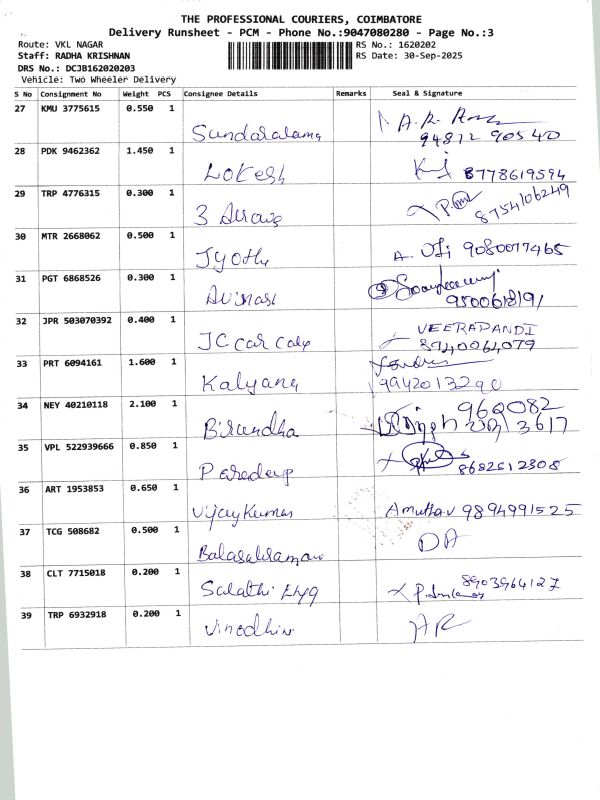 THE PROFESSIONAL COURIERS, COIMBATORE
Delivery Runsheet - PCM - Phone No.:9047080280 - Page No.:3
Route: VKL NAGAR RS No.: 1620202
Staff: RADHA KRISHNAN RS Date: 30-Sep-2025
DRS No.: DCJB162020203
Vehicle: Two Wheeler Delivery
S No Consignment No Weight PCS Consignee Details Remarks Seal & Signature
27 KMU 3775615 0.550 1
28 PDK 9462362 1.450 1 Lokesh 8778619594
29 TRP 4776315 0.300 1 8754106249
30 MTR 2668062 0.500 1 Jyothi 9080077465
31 PGT 6868526 0.300 1 Avinash
32 JPR 503070392 0.400 1 JC car care VEERAPANDI
33 PRT 6094161 1.600 1 Kalyana 9942013290
34 NEY 40210118 2.100 1 Birundha 960082
3617
35 VPL 522939666 0.850 1 8682512308
36 ART 1953853 0.650 1 VijayKumar Amutha.v 9894991525
37 TCG 508682 0.500 1 DA
38 CLT 7715018 0.200 1 8903964127
39 TRP 6932918 0.200 1 Vinodhini AR